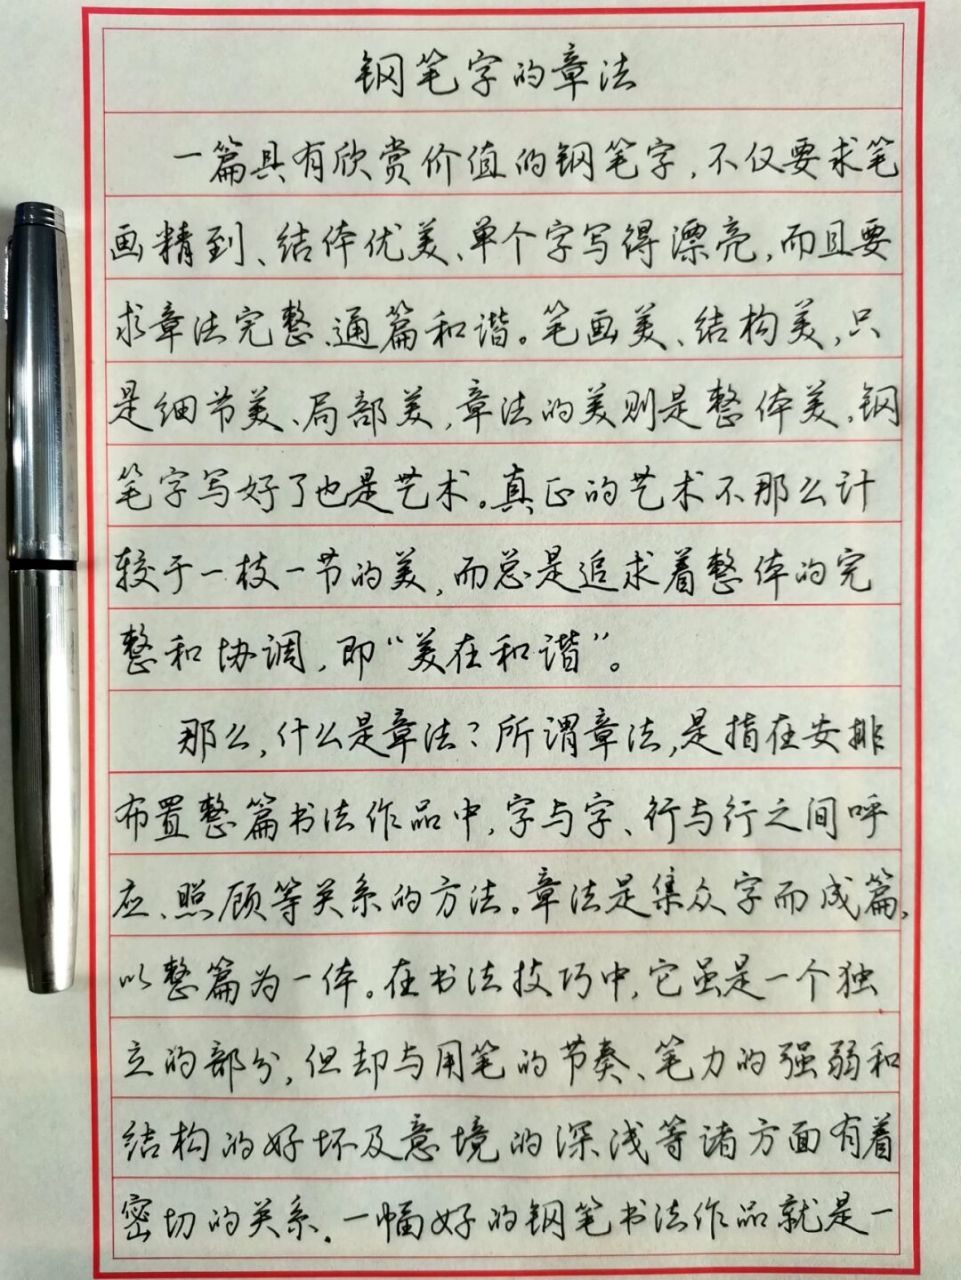 钢笔字的章法
一篇具有欣赏价值的钢笔字,不仅要求笔
画精到、结体优美、单个字写得漂亮,而且要
求章法完整、通篇和谐。笔画美、结构美,只
是细节美、局部美,章法的美则是整体美,钢
笔字写好了也是艺术。真正的艺术不那么计
较于一枝一节的美,而总是追求着整体的完
整和协调,即“美在和谐”。
那么,什么是章法?所谓章法,是指在安排
布置整篇书法作品中,字与字、行与行之间呼
应、照顾等关系的方法。章法是集众字而成篇,
以整篇为一体。在书法技巧中,它虽是一个独
立的部分,但却与用笔的节奏、笔力的强弱和
结构的好坏及意境的深浅等诸方面有着
密切的关系.一幅好的钢笔书法作品就是一